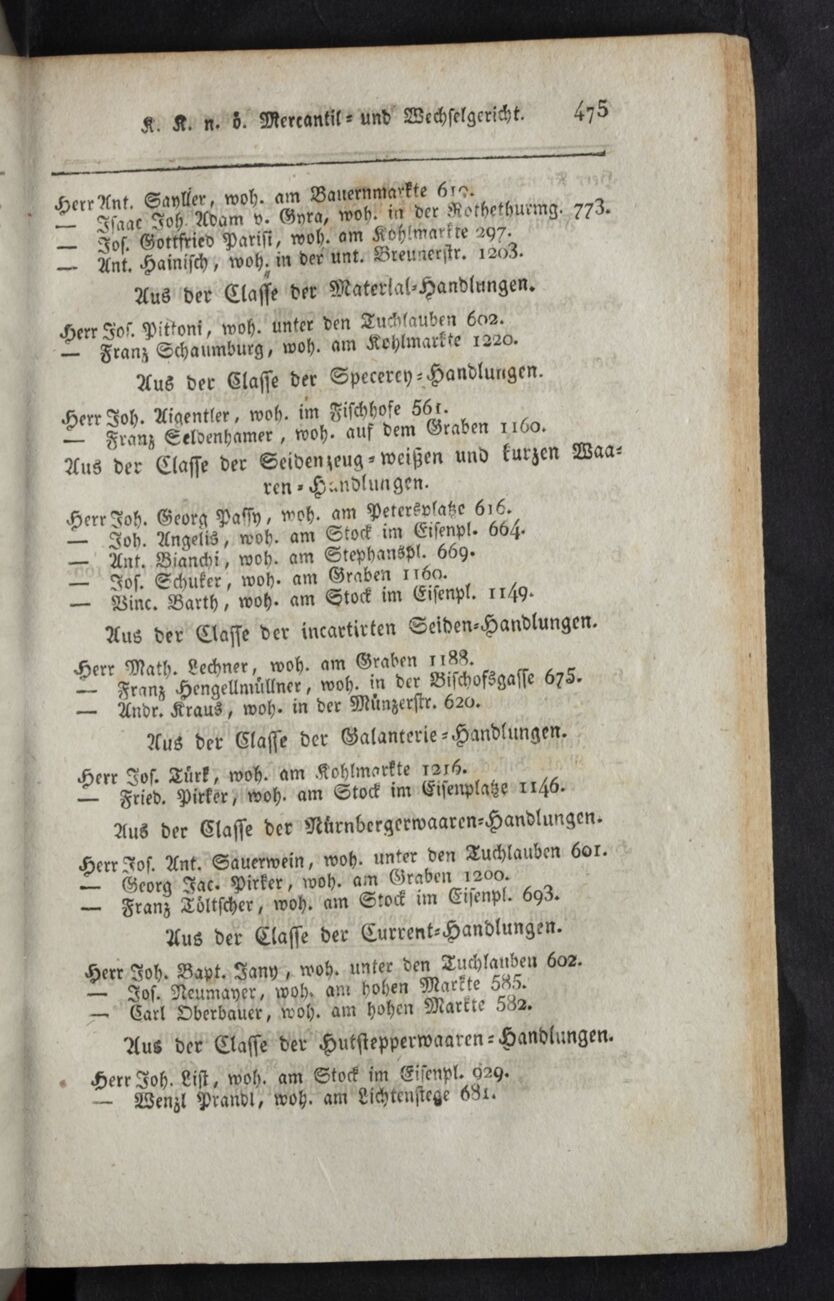 K. K. n. ö. Mercantil- und Wechselgericht. 475
Herr Ant. Sayller, woh. am Bauernmarkte
— Isaac Joh. Adam v. Gyra, woh. in der Rothethurmg. 773.
— Jos. Gottfried Parisi, woh. am Kohlmarkte 297.
— Ant. Hainisch, woh. in der unt. Breunerstr. 1203.
Aus der Classe der Material-Handlungen.
Herr Jos. Pittoni, woh. unter den Tuchlauben 602.
— Franz Schaumburg, woh. am Kohlmarkte 1220.
Aus der Classe der Specerey-Handlungen.
Herr Joh. Aigentler, woh. im Fischhofe 561.
— Franz Seldenhamer, woh. auf dem Graben 1160.
Aus der Classe der Seidenzeug-weißen und kurzen Waa-
ren-Handlungen.
Herr Joh. Georg Passy, woh. am Petersplatze 616.
— Joh. Angelis, woh. am Stock im Eisenpl. 664.
— Ant. Bianchi, woh. am Stephanspl. 669.
— Jos. Schuker, woh. am Graben 1160.
— Vinc. Barth, woh. am Stock im Eisenpl. 1149.
Aus der Classe der incartirten Seiden-Handlungen.
Herr Math. Lechner, woh. am Graben 1188.
— Franz Hengellmüllner, woh. in der Bischofsgasse 675.
— Andr. Kraus, woh. in der Münzerstr. 620.
Aus der Classe der Galanterie-Handlungen.
Herr Jos. Türk, woh. am Kohlmarkte 1216.
— Fried. Pirker, woh. am Stock im Eisenplatze 1146.
Aus der Classe der Nürnbergerwaaren-Handlungen.
Herr Jos. Ant. Sauerwein, woh. unter den Tuchlauben 601.
— Georg Jac. Pirker, woh. am Graben 1200.
— Franz Töltscher, woh. am Stock im Eisenpl. 693.
Aus der Classe der Current-Handlungen.
Herr Joh. Bapt. Jany, woh. unter den Tuchlauben 602.
— Jos. Neumayer, woh. am hohen Markte 585.
— Carl Oberbauer, woh. am hohen Markte 582.
Aus der Classe der Hutstepperwaaren-Handlungen.
Herr Joh. List, woh. am Stock im Eisenpl. 929.
— Wenzl Prandl, woh. am Lichtenstege 681.